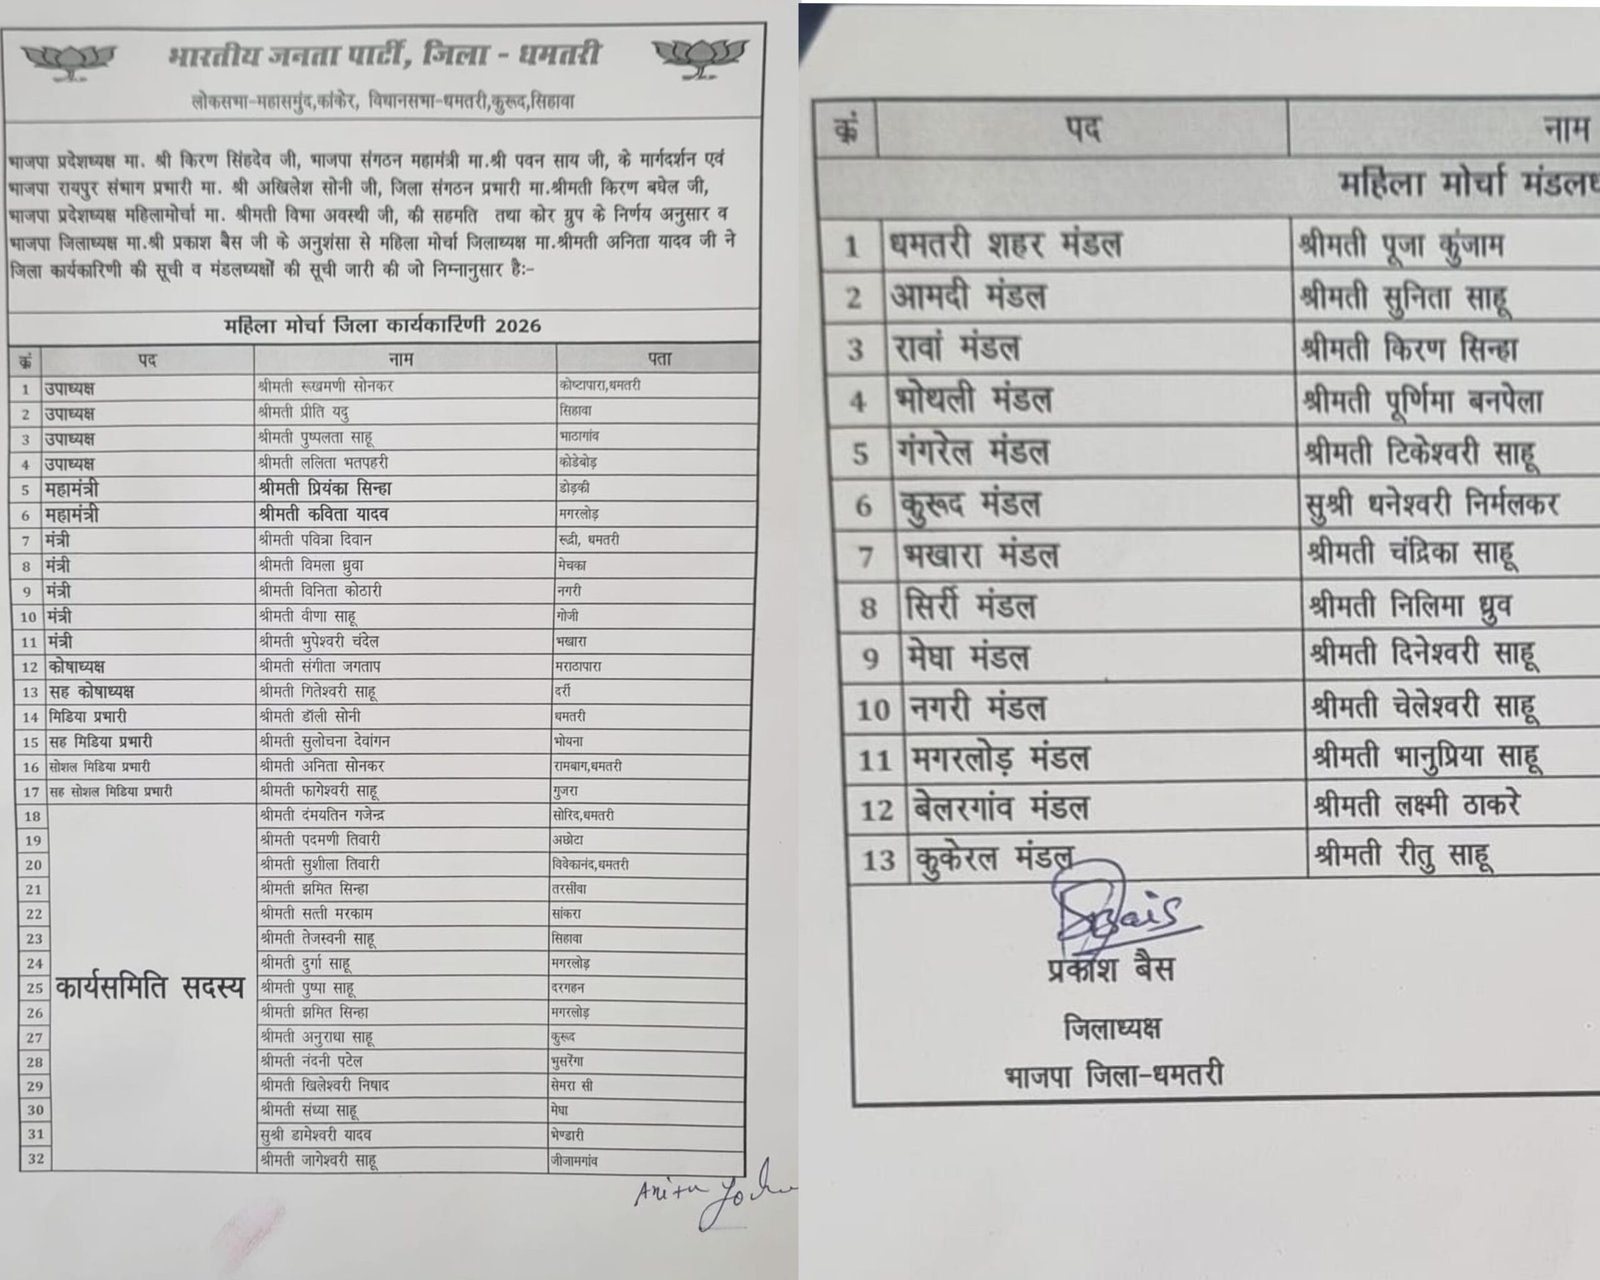 भारतीय जनता पार्टी, जिला - धमतरी
लोकसभा-महासमुंद,कांकेर, विधानसभा-धमतरी,कुरूद,सिहावा
भाजपा प्रदेशध्यक्ष मा. श्री किरण सिंहदेव जी, भाजपा संगठन महामंत्री मा.श्री पवन साय जी, के मार्गदर्शन एवं
भाजपा रायपुर संभाग प्रभारी मा. श्री अखिलेश सोनी जी, जिला संगठन प्रभारी मा.श्रीमती किरण बघेल जी,
भाजपा प्रदेशध्यक्ष महिलामोर्चा मा. श्रीमती विभा अवस्थी जी, की सहमति तथा कोर ग्रुप के निर्णय अनुसार व
भाजपा जिलाध्यक्ष मा.श्री प्रकाश बैस जी के अनुशंसा से महिला मोर्चा जिलाध्यक्ष मा.श्रीमती अनिता यादव जी ने
जिला कार्यकारिणी की सूची व मंडलध्यक्षों की सूची जारी की जो निम्नानुसार हैः-
महिला मोर्चा जिला कार्यकारिणी 2026
क्रं पद नाम पता
1 उपाध्यक्ष श्रीमती रूखमणी सोनकर कोष्टापारा,धमतरी
2 उपाध्यक्ष श्रीमती प्रीति यदु सिहावा
3 उपाध्यक्ष श्रीमती पुष्पलता साहू भाठागांव
4 उपाध्यक्ष श्रीमती ललिता भतपहरी कोडेबोड़
5 महामंत्री श्रीमती प्रियंका सिन्हा डोड़की
6 महामंत्री श्रीमती कविता यादव मगरलोड़
7 मंत्री श्रीमती पवित्रा दिवान रूद्री, धमतरी
8 मंत्री श्रीमती विमला ध्रुवा मेचका
9 मंत्री श्रीमती विनिता कोठारी नगरी
10 मंत्री श्रीमती वीणा साहू गोजी
11 मंत्री श्रीमती भुपेश्वरी चंदेल भखारा
12 कोषाध्यक्ष श्रीमती संगीता जगताप मराठापारा
13 सह कोषाध्यक्ष श्रीमती गितेश्वरी साहू दर्री
14 मिडिया प्रभारी श्रीमती डॉली सोनी धमतरी
15 सह मिडिया प्रभारी श्रीमती सुलोचना देवांगन भोयना
16 सोशल मिडिया प्रभारी श्रीमती अनिता सोनकर रामबाग,धमतरी
17 सह सोशल मिडिया प्रभारी श्रीमती फागेश्वरी साहू गुजरा
18 श्रीमती दंमयतिन गजेन्द्र सोरिद,धमतरी
19 श्रीमती पदमणी तिवारी अछोटा
20 श्रीमती सुशीला तिवारी विवेकानंद,धमतरी
21 श्रीमती झमित सिन्हा तरसीवा
22 श्रीमती सत्ती मरकाम सांकरा
23 श्रीमती तेजस्वनी साहू सिहावा
24 श्रीमती दुर्गा साहू मगरलोड़
25 कार्यसमिति सदस्य श्रीमती पुष्पा साहू दरगहन
26 श्रीमती झमित सिन्हा मगरलोड़
27 श्रीमती अनुराधा साहू कुरूद
28 श्रीमती नंदनी पटेल भुसरेंगा
29 श्रीमती खिलेश्वरी निषाद सेमरा सी
30 श्रीमती संध्या साहू मेघा
31 सुश्री डामेश्वरी यादव भेण्डारी
32 श्रीमती जागेश्वरी साहू जीजामगांव
Anita
क्रं पद नाम
महिला मोर्चा मंडलध
1 धमतरी शहर मंडल श्रीमती पूजा कुंजाम
2 आमदी मंडल श्रीमती सुनिता साहू
3 रावां मंडल श्रीमती किरण सिन्हा
4 भोथली मंडल श्रीमती पूर्णिमा बनपेला
5 गंगरेल मंडल श्रीमती टिकेश्वरी साहू
6 कुरूद मंडल सुश्री धनेश्वरी निर्मलकर
7 भखारा मंडल श्रीमती चंद्रिका साहू
8 सिर्री मंडल श्रीमती निलिमा ध्रुव
9 मेघा मंडल श्रीमती दिनेश्वरी साहू
10 नगरी मंडल श्रीमती चेलेश्वरी साहू
11 मगरलोड़ मंडल श्रीमती भानुप्रिया साहू
12 बेलरगांव मंडल श्रीमती लक्ष्मी ठाकरे
13 कुकेरल मंडल श्रीमती रीतु साहू
प्रकाश बैस
जिलाध्यक्ष
भाजपा जिला-धमतरी